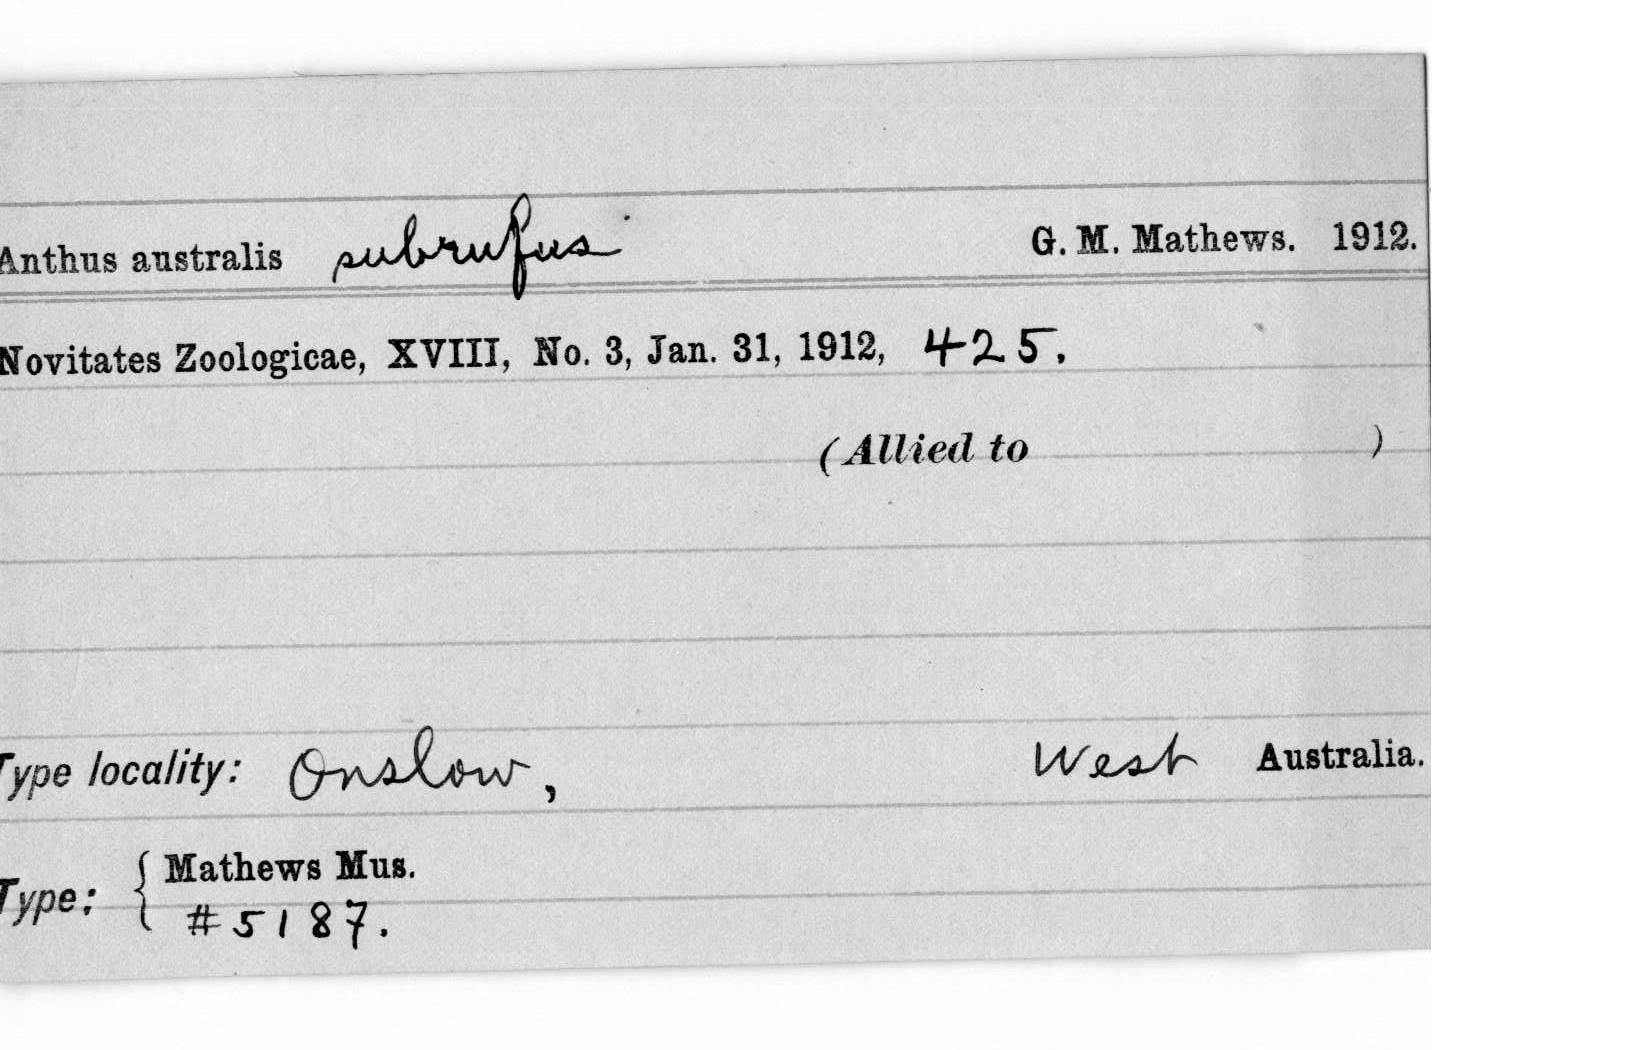 Anthus australis subrufus G. M. Mathews. 1912.
Novitates Zoologicae, XVIII, No. 3, Jan. 31, 1912, 425.
(Allied to )
Type locality: Onslow, West Australia.
Type: { Mathews Mus.
#5187.